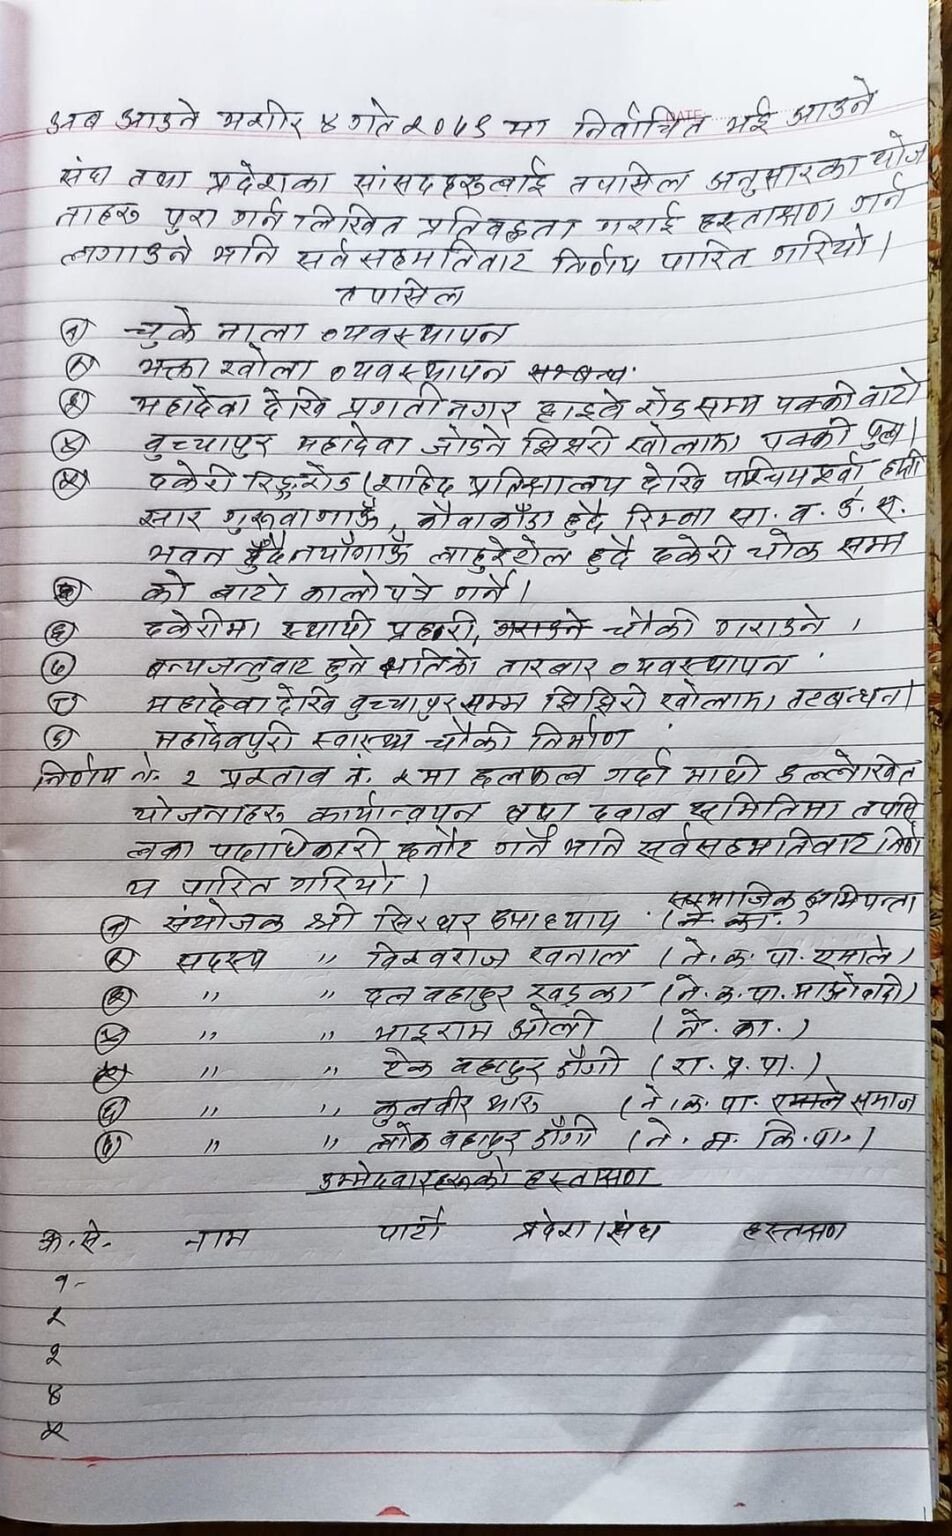 अब आउने मंसीर ४ गते २०७९ मा निर्वाचित भई आउने
संघ तथा प्रदेशका सांसदहरुलाई तपासिल अनुसारका योज
नाहरु पुरा गर्न लिखित प्रतिवद्धता गराई हस्ताक्षण गर्न
लगाउने भनि सर्वसहमतिवाट निर्णय पारित गरियो।
तपासिल
१ चुके नाला व्यवस्थापन
२ भक्ता खोला व्यवस्थापन सम्बन्ध
३ महादेवा देखि प्रगतीनगर हाइवे रोड सम्म पक्की वाटो
४ वुच्चापुर महादेवा जोडने झिझरी खोलामा पक्की पुल।
५ ढकेरी रिङ्गरोड (शहिद प्रतिक्षालय देखि पश्चिम पूर्वा
सार गुरुवागाउँ, कौवाकाँडा हुदै रिम्ना सा. व. उ. स.
भवन हुँदै नयाँगाउँ लाहुरेटोल हुदै ढकेरी चोक सम्म
को बाटो कालोपत्रे गर्ने।
६ ढकेरीमा स्थायी प्रहरी, चौकी गराउने।
७ बन्यजन्तुवाट हुने क्षतिको तारबार व्यवस्थापन
८ महादेवा देखि वुच्चापुर सम्म झिझिरी खोलामा तटबन्धन।
९ महादेवपुरी स्वास्थ्य चौकी निर्माण
निर्णय नं. २ प्रस्ताव नं. २ मा छलफल गर्दा माथी उल्लेखित
योजनाहरु कार्यान्वयन तथा दवाब समितिमा तपसि
लका पदाधिकारी छनौट गर्ने भनि सर्वसहमतिवाट निर्ण
य पारित गरियो।
सामाजिक अभियन्ता
१ संयोजक श्री सिरधर उपाध्याय (ने. का.
२ सदस्य " विश्वराज खनाल (ने. क. पा. एमाले)
३ " " दल वहादुर खड्का (ने. क. पा. माओवादी)
४ " " भाइराम ओली (ने. का.)
५ " " टेक वहादुर डाँगी (रा. प्र. पा.)
६ " " कुलवीर थारु (ने. क. पा. एमाले समाज
७ " " लोक वहादुर डाँगी (ने. म. कि. पा.)
उम्मेदवारहरुको हस्ताक्षण
क्र.सं. नाम पार्टी प्रदेश/संघ हस्ताक्षण
१-
२
३
४
५